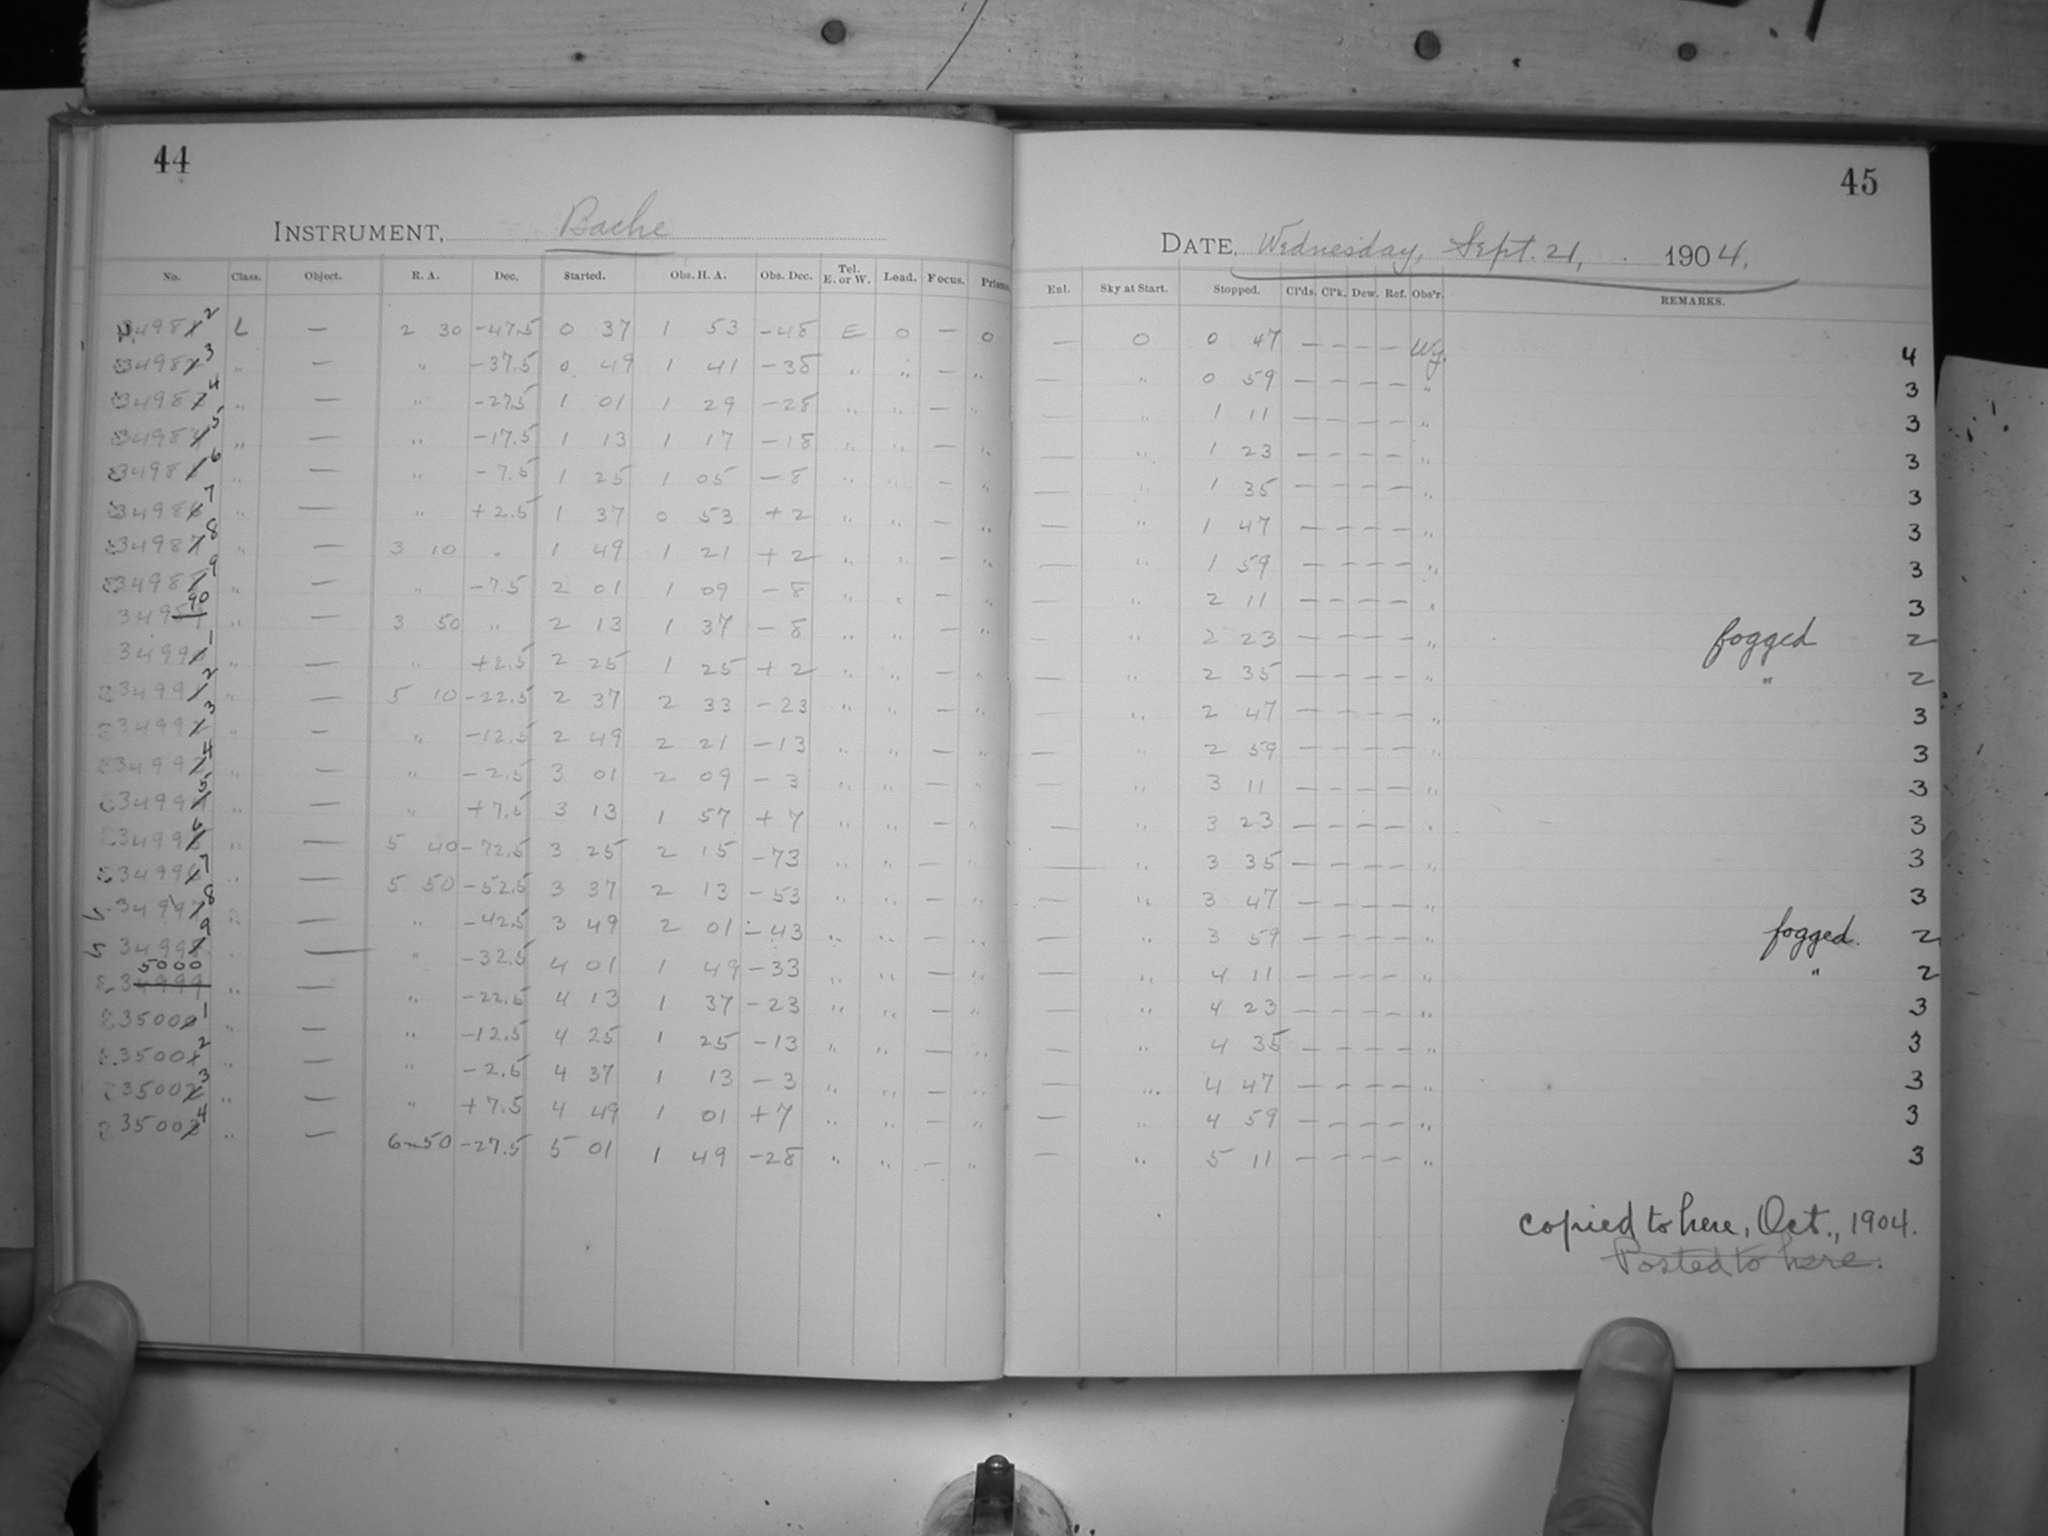 44
45
INSTRUMENT, Bache
DATE, Wednesday, Sept. 21, 1904.
No. Class. Object. R. A. Dec. Started. Obs. H. A. Obs. Dec. Tel. E. or W. Load. Focus. Prisms. Enl. Sky at Start. Stopped. Cl'ds. Cl'k. Dew. Ref. Obs'r. REMARKS.
2 L — 2 30 -47.5 0 37 1 53 -48 E 0 — 0 — 0 0 47 — — — — Wy. 4
3 " — " -37.5 0 49 1 41 -38 " " — " — " 0 59 — — — — " 3
4 " — " -27.5 1 01 1 29 -28 " " — " — " 1 11 — — — — " 3
5 " — " -17.5 1 13 1 17 -18 " " — " — " 1 23 — — — — " 3
6 " — " -7.5 1 25 1 05 -8 " " — " — " 1 35 — — — — " 3
7 " — " +2.5 1 37 0 53 +2 " " — " — " 1 47 — — — — " 3
8 " — 3 10 " 1 49 1 21 +2 " " — " — " 1 59 — — — — " 3
9 " — " -7.5 2 01 1 09 -8 " " — " — " 2 11 — — — — " 3
90 " — 3 50 " 2 13 1 37 -8 " " — " — " 2 23 — — — — " fogged 2
1 " — " +2.5 2 25 1 25 +2 " " — " — " 2 35 — — — — " " 2
2 " — 5 10 -22.5 2 37 2 33 -23 " " — " — " 2 47 — — — — " 3
3 " — " -12.5 2 49 2 21 -13 " " — " — " 2 59 — — — — " 3
4 " — " -2.5 3 01 2 09 -3 " " — " — " 3 11 — — — — " 3
5 " — " +7.5 3 13 1 57 +7 " " — " — " 3 23 — — — — " 3
6 " — 5 40 -72.5 3 25 2 15 -73 " " — " — " 3 35 — — — — " 3
7 " — 5 50 -52.5 3 37 2 13 -53 " " — " — " 3 47 — — — — " 3
8 " — " -42.5 3 49 2 01 -43 " " — " — " 3 59 — — — — " fogged. 2
9 " — " -32.5 4 01 1 49 -33 " " — " — " 4 11 — — — — " " 2
5000 34999 " — " -22.5 4 13 1 37 -23 " " — " — " 4 23 — — — — " 3
35000 1 " — " -12.5 4 25 1 25 -13 " " — " — " 4 35 — — — — " 3
35001 2 " — " -2.5 4 37 1 13 -3 " " — " — " 4 47 — — — — " 3
35002 3 " — " +7.5 4 49 1 01 +7 " " — " — " 4 59 — — — — " 3
35003 4 " — 6 50 -27.5 5 01 1 49 -28 " " — " — " 5 11 — — — — " 3
copied to here, Oct., 1904.
Posted to here.